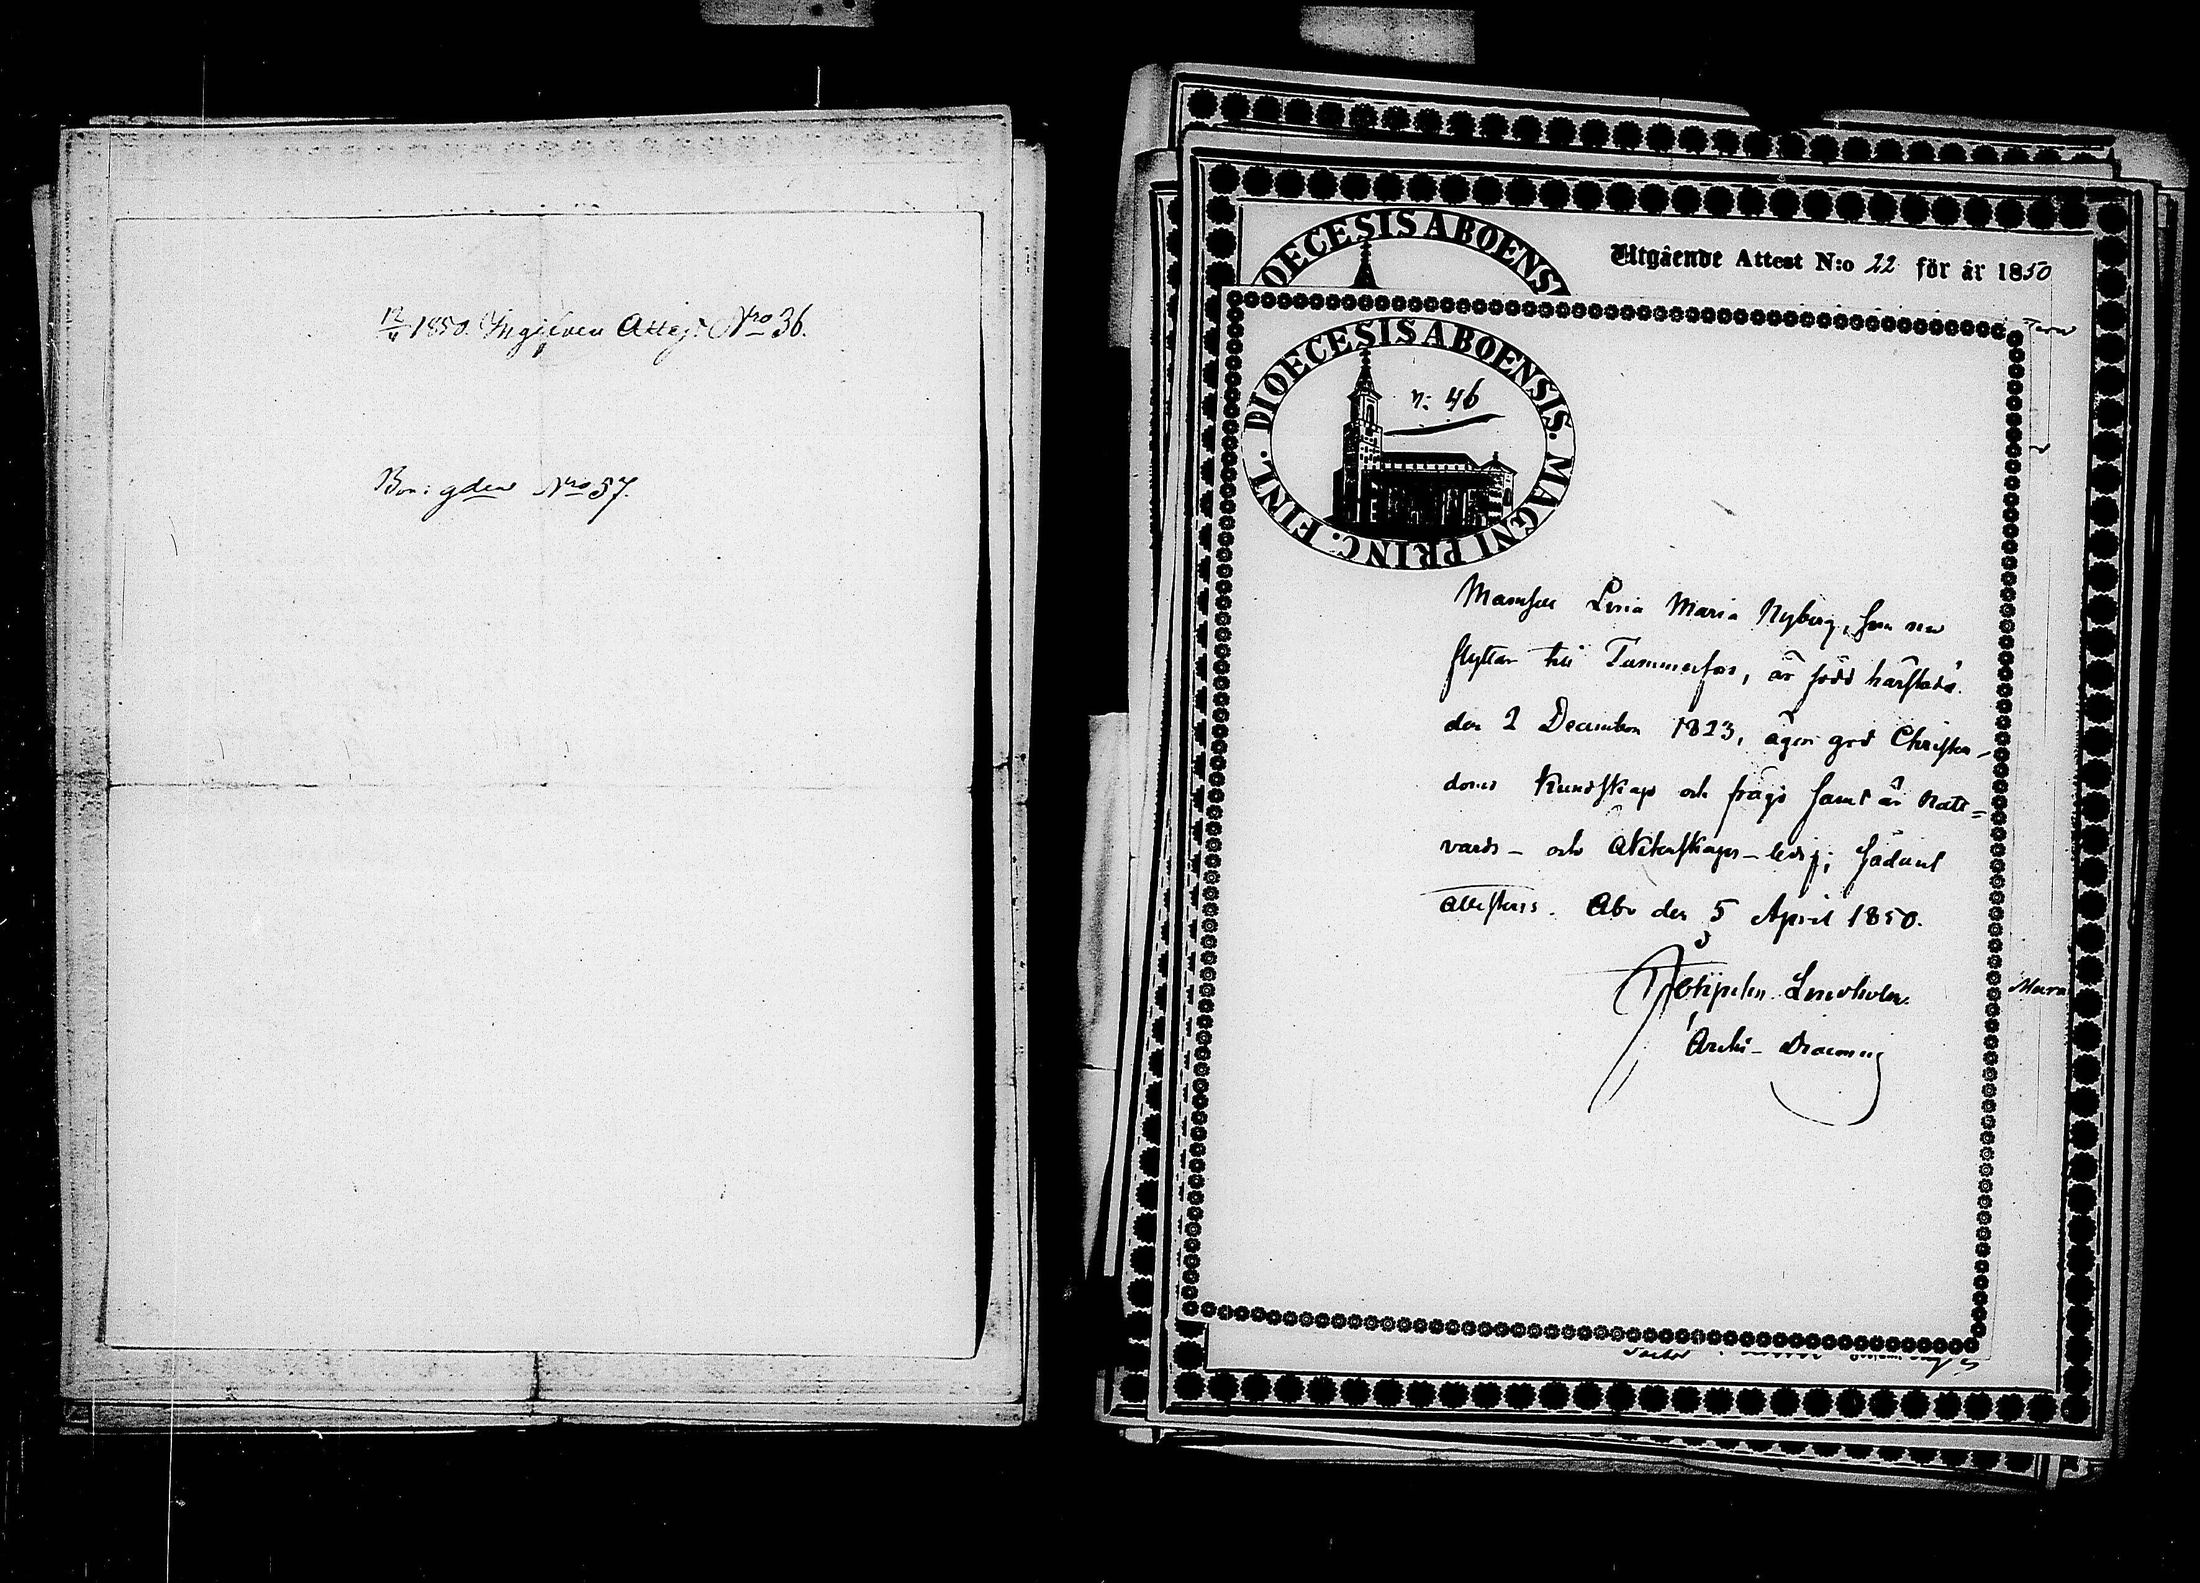 12/4 1850. Ingifven Attest Nro 36.
Nro 57.
DIOECESIS ABOENS
Utgående Attest N:o 22 för år 1850
DIOECESIS ABOENSIS. MAGNI PRINC. FINL.
n: 46
Mamsell Lovisa Maria Nyberg, som nu
flyttar till Tammerfors, är född härstädes
den 2 December 1823, äger god Christen-
doms kunskap och frägd samt är Natt-
vards- och äktenskaps-ledig; sådant
attesteras. Åbo den 5 April 1850.
Lindholm